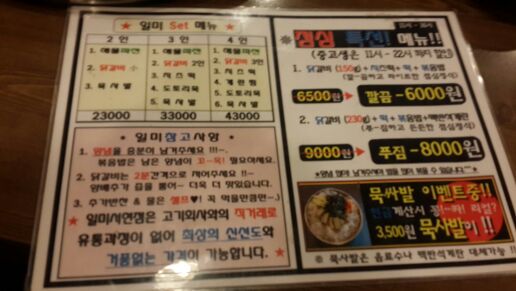 일미 Set 메뉴
2 인 3 인 4 인
1. 해물파전 1. 해물파전 1. 해물파전
2. 닭갈비 小 2. 닭갈비 2인 2. 닭갈비 3인
3. 치즈떡 3. 치즈떡
4. 계란찜
3. 묵사발 4. 도토리묵 5. 도토리묵
5. 묵사발 6. 묵사발
23000 33000 43000
일미참고사항
1. 양념을 충분히 남겨주시요 !!!~.
볶음밥은 남은 양념이 꼬~옥! 필요해요.
2. 닭갈비는 2분간격으로 저어주세요 !!~
양배추가 즙을 뿜어~ 더욱 더 맛있습니다.
3. 추가반찬 & 물은 셀프
일미서현점은 고기회사와의 직거래로
유통과정이 없어 최상의 신선도와
거품없는 가격이 가능합니다.
점심 특선! 메뉴!!
(중고생은 11시 - 22시 까지 할인)
1. 닭갈비 (150g)+치즈떡+떡+볶음밥
(깔~끔하고 라이트한 점심정식)
6500원 깔끔 -6000원
2. 닭갈비 (230g)+떡+볶음밥+백반석계란
(푸~짐하고 든든한 점심정식)
9000원 푸짐 -8000원
묵싸발 이벤트중!!
현금계산시
3,500원 묵사발이 !!
묵싸발은 음료수나 백반석계란 대체가능!